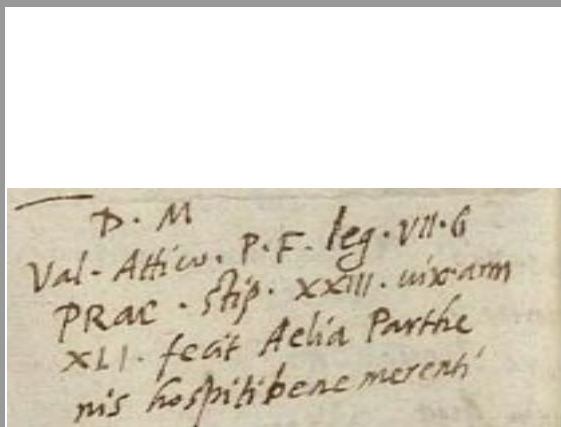 D · M
Val · Attico · P · F · leg · VII · G
PRAC · stip · XXIII · uix · ann
XLI · fecit Aelia Parthe
nis hospiti bene merenti